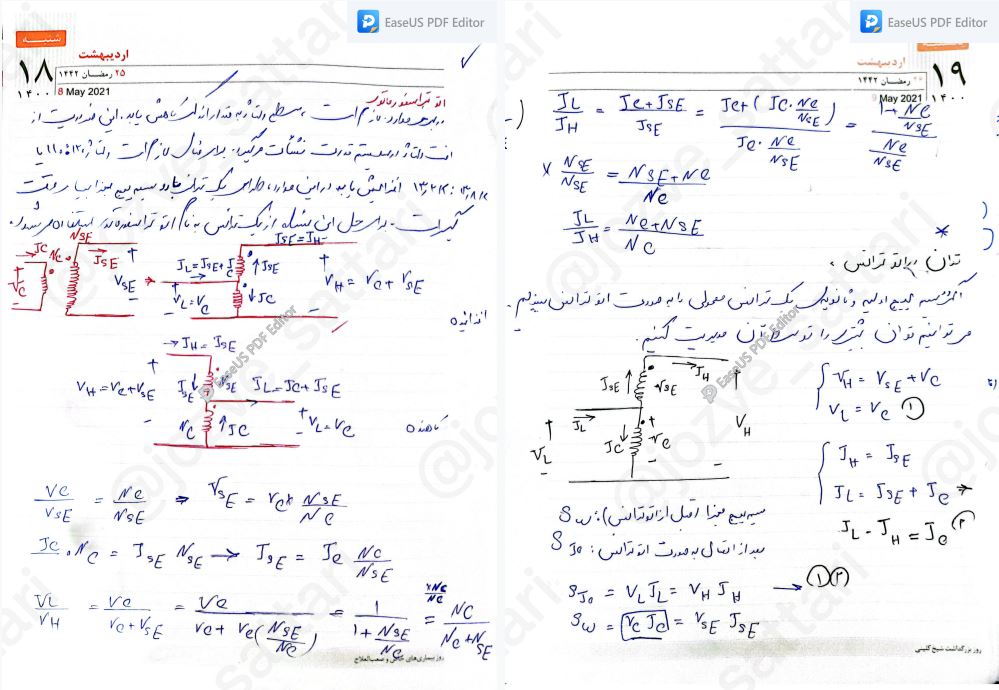 EaseUS PDF Editor
شنبه
اردیبهشت
۱۸
۱۴۰۰
۲۵ رمضان ۱۴۴۲
8 May 2021
اتو ترانسفورماتور
در برخی موارد، لازم است، سطح ولتاژ به مقدار اندک کاهش یابد. این ضرورت از
افت ولتاژ در سیستم قدرت نشأت میگیرد. برای مثال لازم است ولتاژ
افزایش یابد در این موارد، طراحی یک ترانس با دو سیم پیچ مجزا بسیار پر قیمت
گیر است. برای حل این مسئله از یک ترانس به نام اتو ترانسفورماتور استفاده می‌شود.
NSE
IC NC ISE
VC VSE
ISE = IH
IL = ISE + IC ↑ISE
VL = VC ↓IC
VH = VC + VSE
افزاینده
→ IH = ISE
VH = VC + VSE ISE↓ NSE IL = IC + ISE
NC ↑IC VL = VC
کاهنده
VC/VSE = NC/NSE ⇒ VSE = VC × NSE/NC
IC . NC = ISE NSE → ISE = IC NC/NSE
VL/VH = VC/(VC + VSE) = VC/(VC + VC(NSE/NC)) = 1/(1 + NSE/NC) ×NC/NC = NC/(NC + NSE)
روز بیماری‌های خاص و صعب‌العلاج
EaseUS PDF Editor
یکشنبه
اردیبهشت
۱۹
۱۴۰۰
رمضان ۱۴۴۲
9 May 2021
IL/IH = (IC + ISE)/ISE = (IC + (IC . NC/NSE))/(IC . NC/NSE) = (1 + NC/NSE)/(NC/NSE)
× NSE/NSE = (NSE + NC)/NC
IL/IH = (NC + NSE)/NC *
توان در اتو ترانس:
اگر سیم پیچ اولیه و ثانویه یک ترانس معمولی را به صورت اتو ترانس ببندیم.
می توانیم توان بیشتری را توسط آن مدیریت کنیم.
→ IH
ISE ↑ VSE
IL →
IC ↓ VC
VL VH
VH = VSE + VC
VL = VC ①
IH = ISE
IL = ISE + IC →
IL - IH = IC ②
سیم پیچ مجزا (قبل از اتوترانس): SW
بعد از اتصال به صورت اتوترانس: SIO
SIO = VL IL = VH IH → ①②
SW = VC IC = VSE ISE
روز بزرگداشت شیخ کلینی
@jozve_sattari